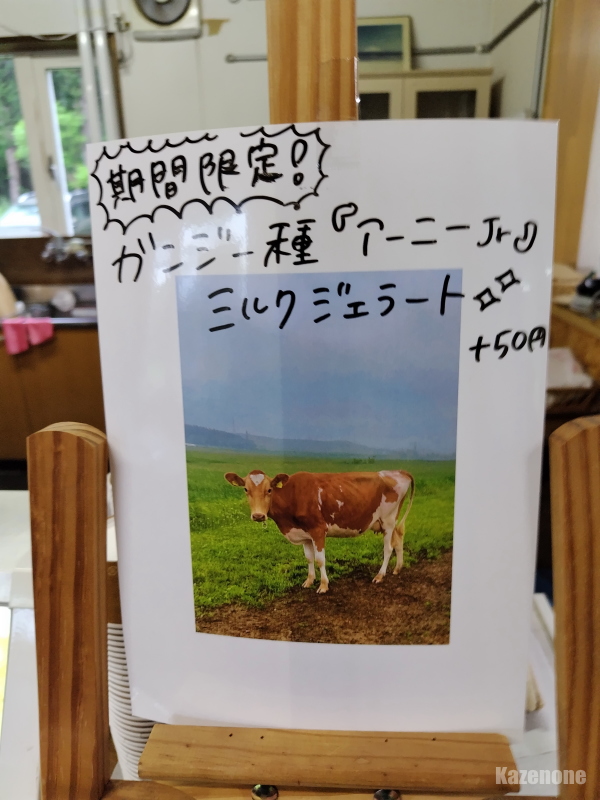 期間限定!
ガンジー種『アーニーJr』
ミルクジェラート
+50円
Kazenone